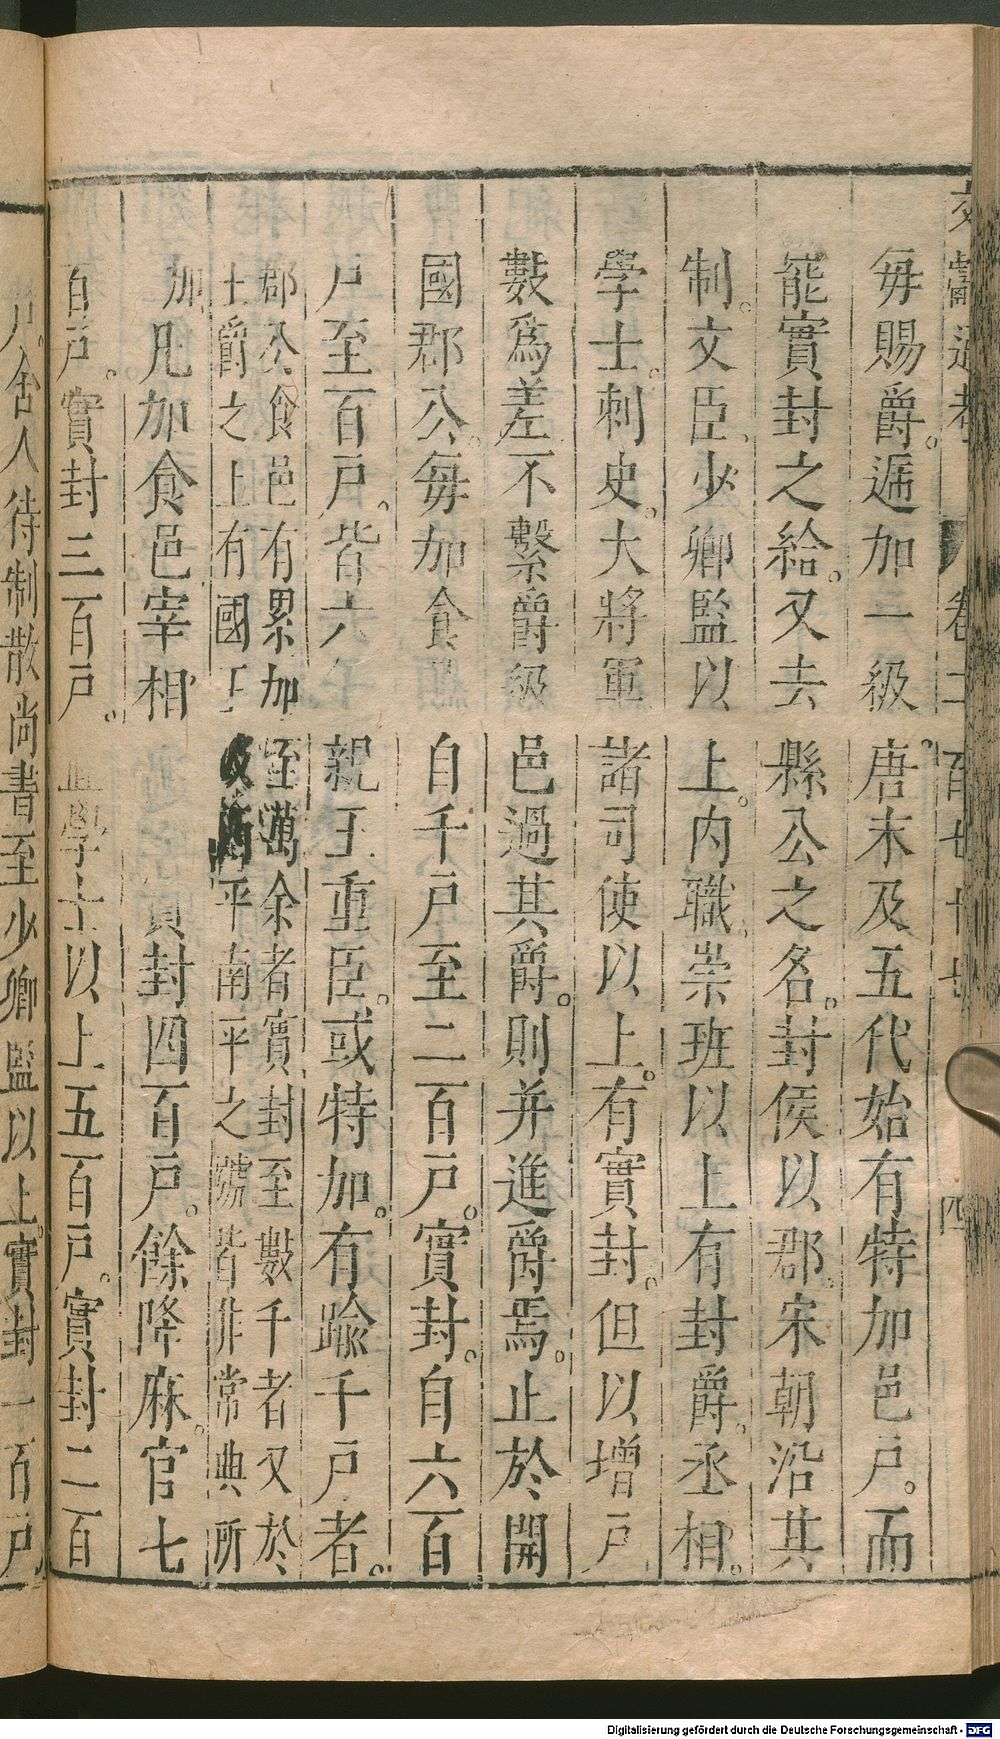 每賜爵。遞加一級。唐末及五代始有特加邑戶。而
罷實封之給。又去縣公之名。封侯以郡。宋朝沿其
制。文臣少卿監以上。內職崇班以上有封爵。丞相。
學士。刺史。大將軍諸司使以上。有實封。但以增戶
數爲差。不繫爵級。邑過其爵。則并進爵焉。止於開
國郡公。每加食邑自千戶至二百戶。實封。自六百
戶至百戶。皆六等。親王重臣。或特加。有踰千戶者。
郡公食邑有累加至萬余者實封至數千者又於
王爵之上有國王之號皆非常典所
加。凡加食邑宰相實封四百戶。餘降麻。官七
百戶。實封三百戶。直學士以上五百戶。實封二百
戶。舍人待制散尚書至少卿監以上。實封一百戶
卷二百七十七
四
Digitalisierung gefördert durch die Deutsche Forschungsgemeinschaft - DFG